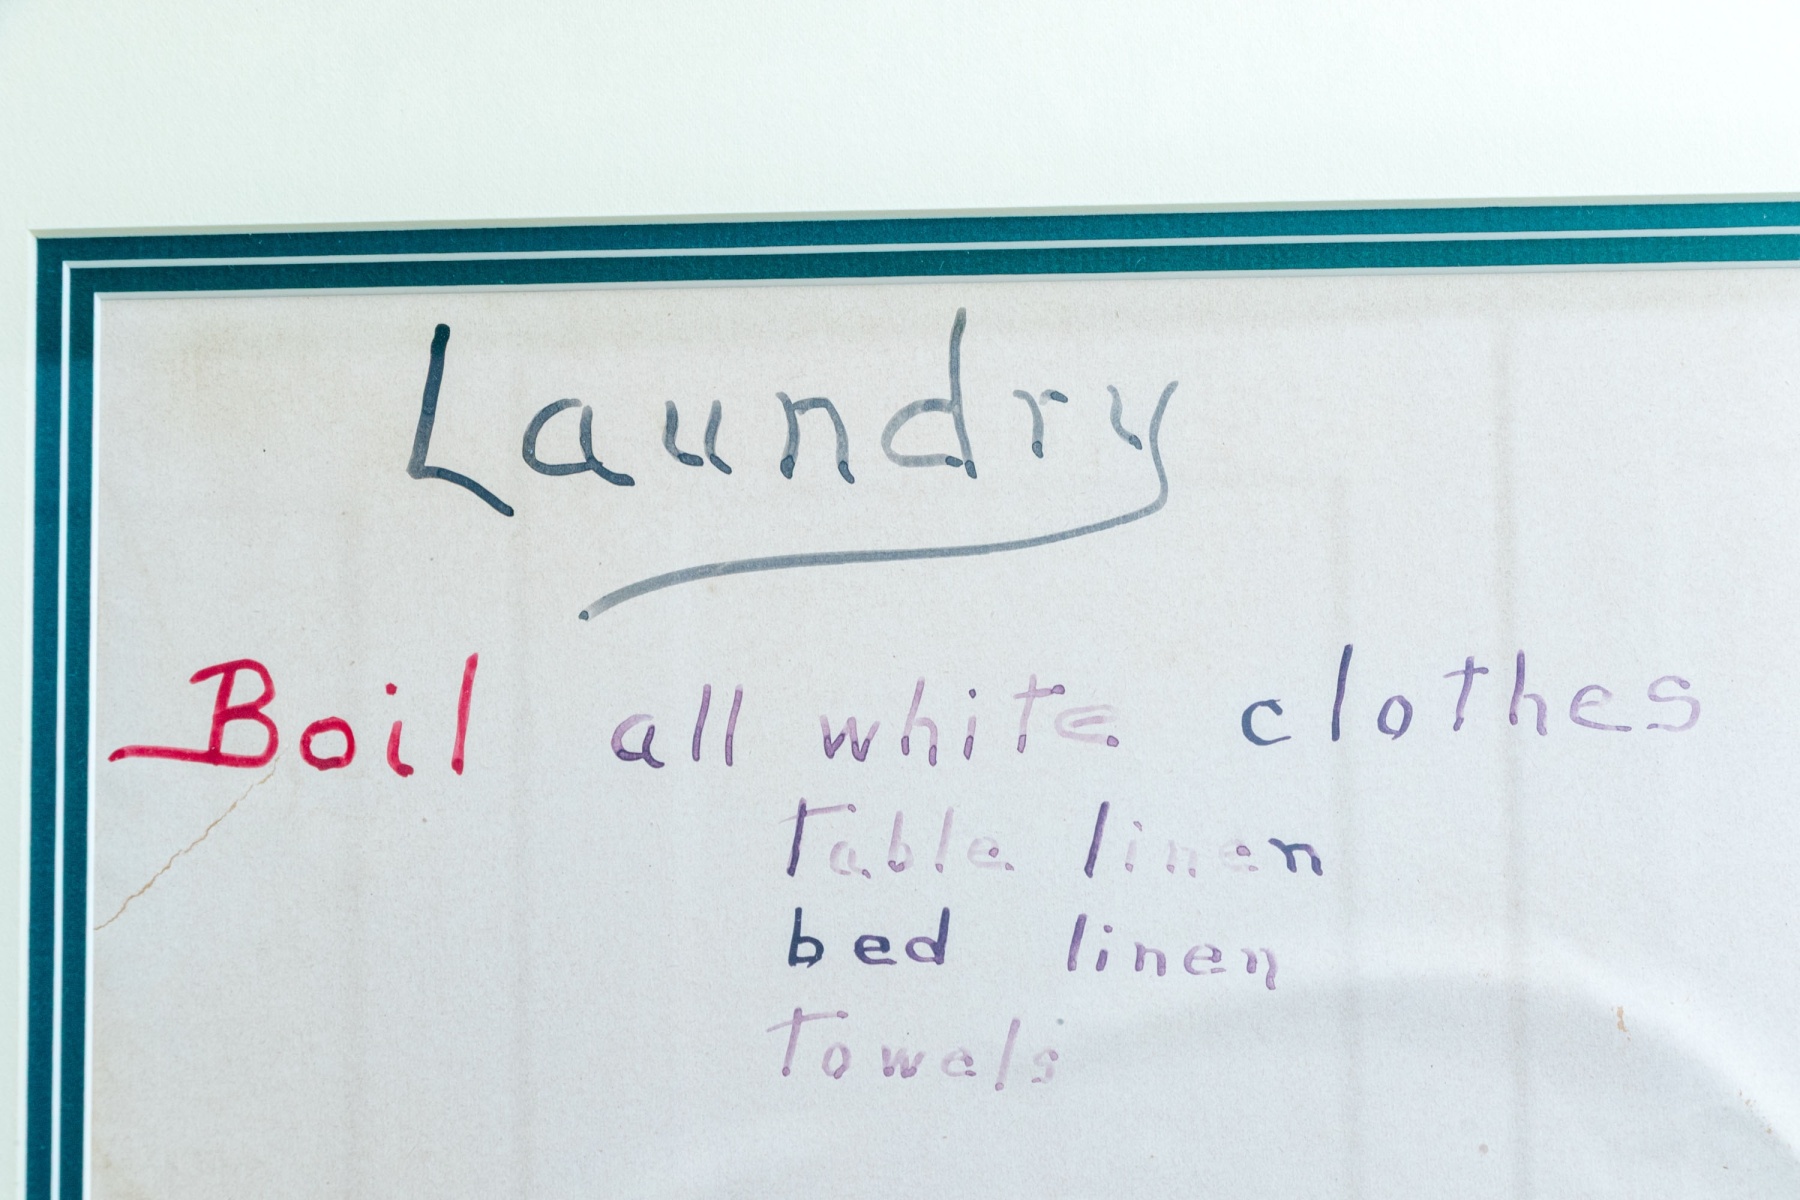 Laundry
Boil all white clothes
Table linen
bed linen
Towels